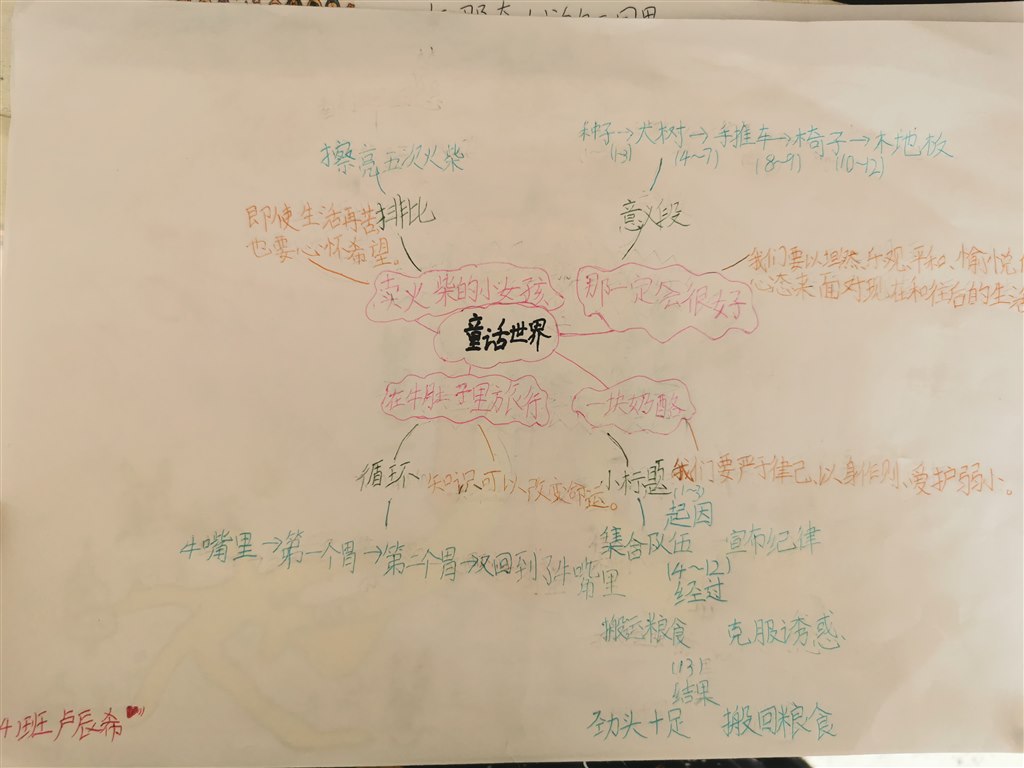 种子→大树→手推车→椅子→木地板
(1~3) (4~7) (8~9) (10~12)
擦亮五次火柴
意义段
排比
即使生活再苦
也要心怀希望。
我们要以坦然、乐观、平和、愉悦
心态来面对现在和往后的生活
卖火柴的小女孩
那一定会很好
童话世界
在牛肚子里旅行
一块奶酪
循环
知识可以改变命运。
小标题
我们要严于律己,以身作则、爱护弱小。
(1~3)
起因
牛嘴里→第一个胃→第二个胃→又回到了牛嘴里
集合队伍 宣布纪律
(4~12)
经过
搬运粮食 克服诱惑
(13)
结果
劲头十足 搬回粮食
4班 卢辰希